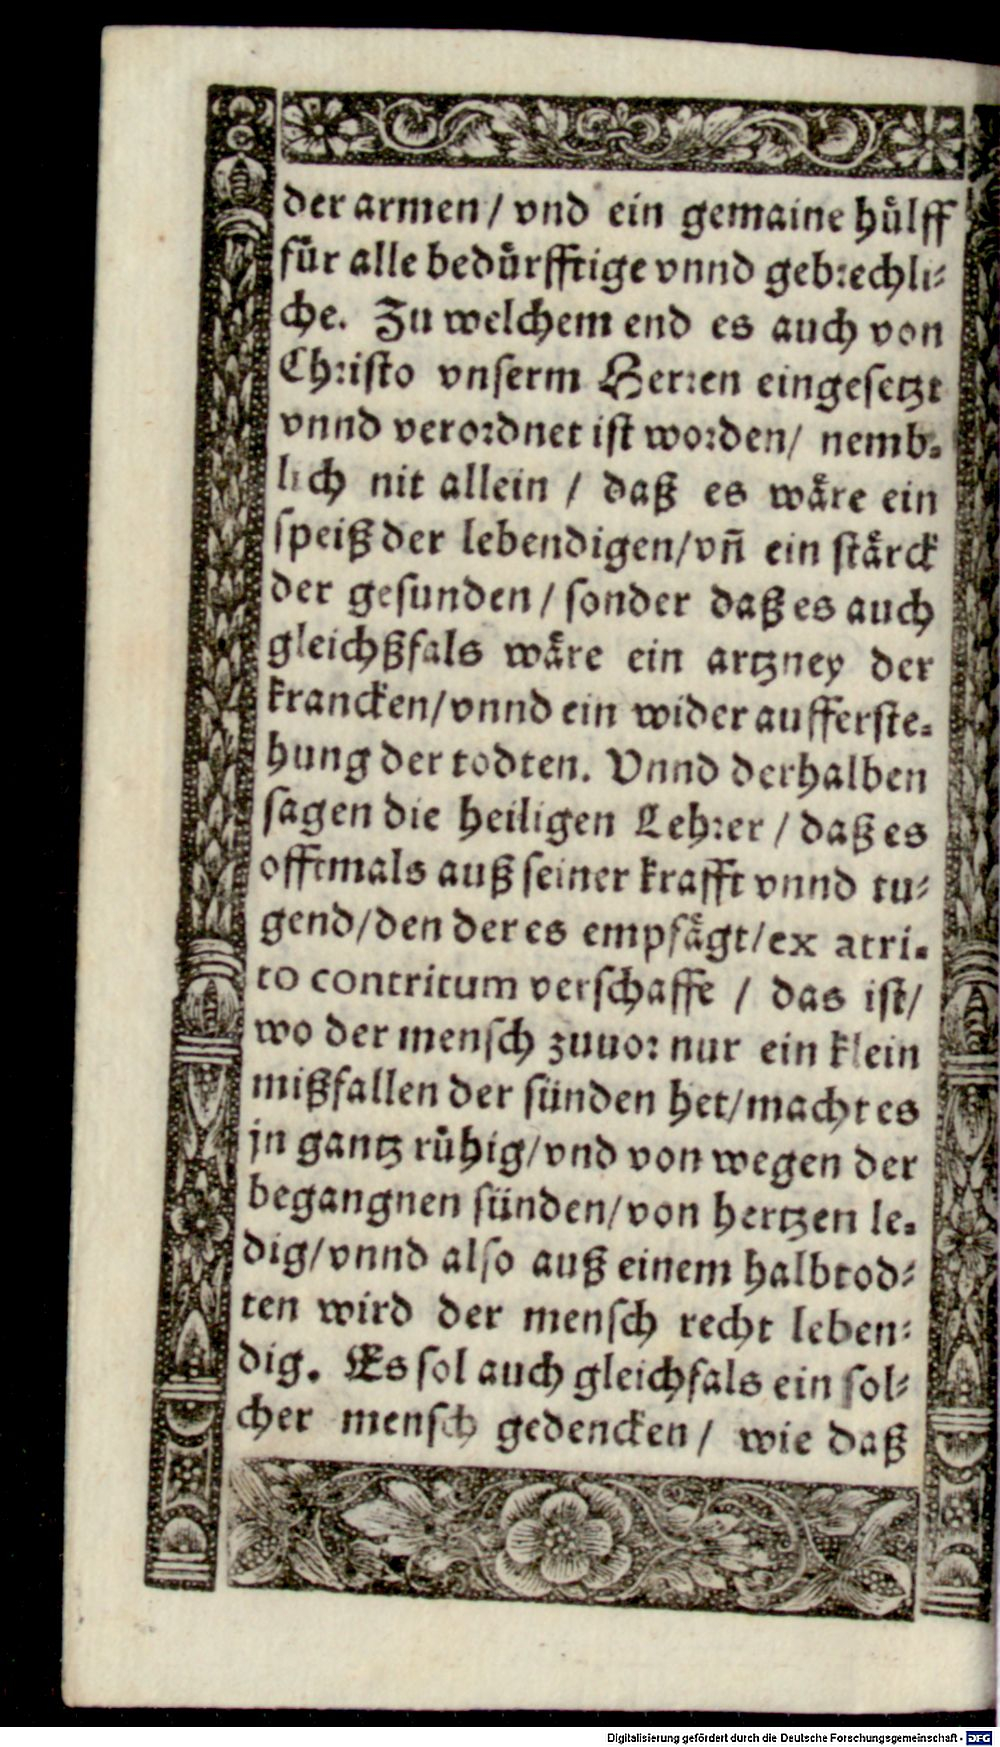 der armen / vnd ein gemaine hůlff
für alle bedůrfftige vnnd gebrechli-
che. Zu welchem end es auch von
Christo vnserm Herren eingesetzt
vnnd verordnet ist worden / nemb-
lich nit allein / daß es wäre ein
speiß der lebendigen / vñ ein stärck
der gesunden / sonder daß es auch
gleichßfals wäre ein artzney der
krancken / vnnd ein wider aufferste-
hung der todten. Vnnd derhalben
sagen die heiligen Lehrer / daß es
offtmals auß seiner krafft vnnd tu-
gend / den der es empfägt / ex atri-
to contritum verschaffe / das ist /
wo der mensch zuuor nur ein klein
mißfallen der sünden het / macht es
jn gantz růhig / vnd von wegen der
begangnen sünden / von hertzen le-
dig / vnnd also auß einem halbtod-
ten wird der mensch recht leben-
dig. Es sol auch gleichfals ein sol-
cher mensch gedencken / wie daß
Digitalisierung gefördert durch die Deutsche Forschungsgemeinschaft - DFG